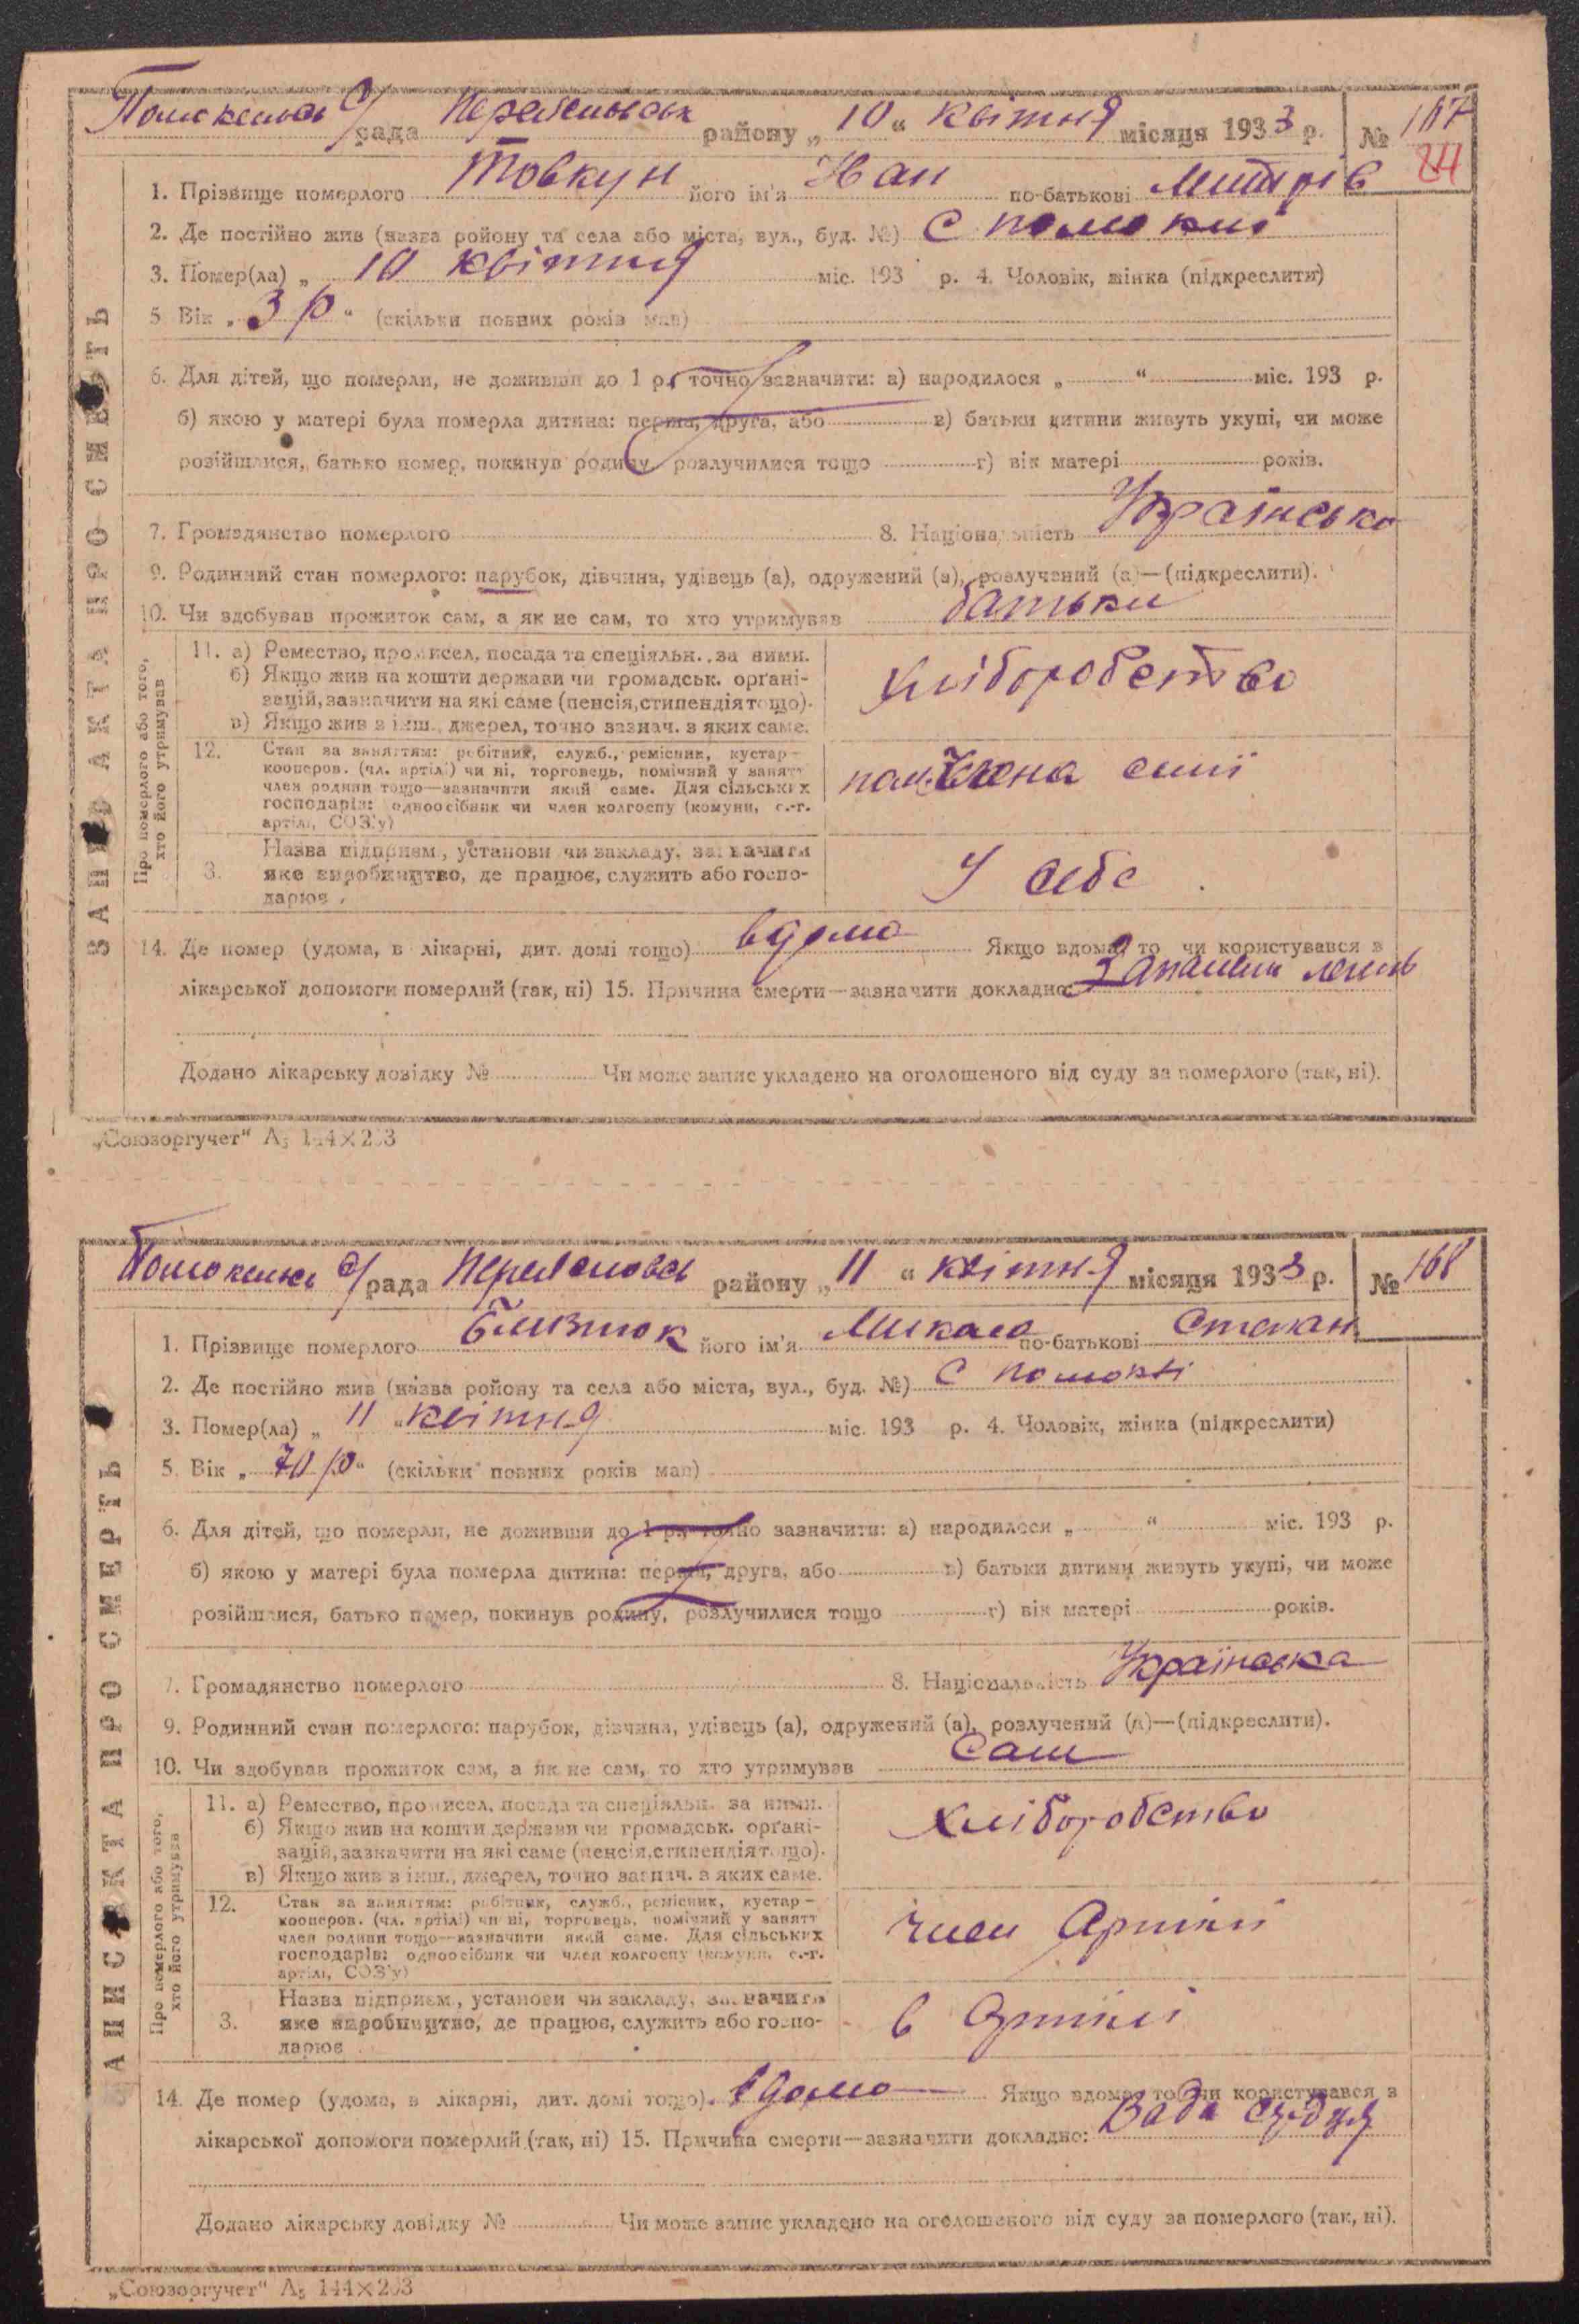 Помокельська с/рада Переяславськ району „10“ квітня місяця 1933 р. № 167
211
ЗАПИС АКТА ПРО СМЕРТЬ
1. Прізвище померлого Товкун його ім'я Іван по-батькові Митрів
2. Де постійно жив (назва ройону та села або міста, вул., буд. №) С Помоклі
3. Помер(ла) „ 10 квітня міс. 193 р. 4. Чоловік, жінка (підкреслити)
5 Вік „ 3 р “ (скільки повних років мав)
6. Для дітей, що померли, не доживши до 1 р., точно зазначити: а) народилося „ “ міс. 193 р.
б) якою у матері була померла дитина: перша, друга, або в) батьки дитини живуть укупі, чи може
розійшлися, батько помер, покинув родину, розлучилися тощо г) вік матері років.
7. Громадянство померлого 8. Національність Українсько
9. Родинний стан померлого: парубок, дівчина, удівець (а), одружений (а), розлучений (а)—(підкреслити).
10. Чи здобував прожиток сам, а як не сам, то хто утримував батьки
Про померлого або того, хто його утримував
11. а) Ремество, промисел, посада та спеціяльн. за ними.
б) Якщо жив на кошти держави чи громадськ. орґані-
зацій, зазначити на які саме (пенсія, стипендія тощо).
в) Якщо жив з інш. джерел, точно зазнач. з яких саме.
хліборобство
12. Стан за заняттям: робітник, служб., ремісник, кустар -
кооперов. (чл. артілі) чи ні, торговець, помічний у занятт
член родини тощо—зазначити який саме. Для сільських
господарів: одноосібник чи член колгоспу (комуни, с.-г.
артілі, СОЗ'у)
члена сімї
3. Назва підприєм., установи чи закладу, зазначити
яке виробництво, де працює, служить або госпо-
дарює
У себе
14. Де помер (удома, в лікарні, дит. домі тощо) вдома Якщо вдома, то чи користувався з
лікарської допомоги померлий (так, ні) 15. Причина смерти—зазначити докладно: Запалення легень
Додано лікарську довідку № Чи може запис укладено на оголошеного від суду за померлого (так, ні).
„Союзоргучет“ А5 144×203
Помокельська с/рада Переяславськ району „11“ квітня місяця 1933 р. № 168
ЗАПИС АКТА ПРО СМЕРТЬ
1. Прізвище померлого Близнюк його ім'я Микола по-батькові Степан
2. Де постійно жив (назва ройону та села або міста, вул., буд. №) С Помоклі
3. Помер(ла) „ 11 “ квітня міс. 193 р. 4. Чоловік, жінка (підкреслити)
5. Вік „ 70 р “ (скільки повних років мав)
6. Для дітей, що померли, не доживши до 1 р., точно зазначити: а) народилося „ “ міс. 193 р.
б) якою у матері була померла дитина: перша, друга, або в) батьки дитини живуть укупі, чи може
розійшлися, батько помер, покинув родину, розлучилися тощо г) вік матері років.
7. Громадянство померлого 8. Національність Українська
9. Родинний стан померлого: парубок, дівчина, удівець (а), одружений (а), розлучений (а)—(підкреслити).
10. Чи здобував прожиток сам, а як не сам, то хто утримував Сам
Про померлого або того, хто його утримував
11. а) Ремество, промисел, посада та спеціяльн. за ними.
б) Якщо жив на кошти держави чи громадськ. орґані-
зацій, зазначити на які саме (пенсія, стипендія тощо).
в) Якщо жив з інш. джерел, точно зазнач. з яких саме.
хліборобство
12. Стан за заняттям: робітник, служб., ремісник, кустар -
кооперов. (чл. артілі) чи ні, торговець, помічний у занятт
член родини тощо—зазначити який саме. Для сільських
господарів: одноосібник чи член колгоспу (комуни, с.-г.
артілі, СОЗ'у)
член Артілі
3. Назва підприєм., установи чи закладу, зазначити
яке виробництво, де працює, служить або госпо-
дарює
в Артілі
14. Де помер (удома, в лікарні, дит. домі тощо). вдома Якщо вдома, то чи користувався з
лікарської допомоги померлий (так, ні) 15. Причина смерти—зазначити докладно: Вада серця
Додано лікарську довідку № Чи може запис укладено на оголошеного від суду за померлого (так, ні).
„Союзоргучет“ А5 144×203